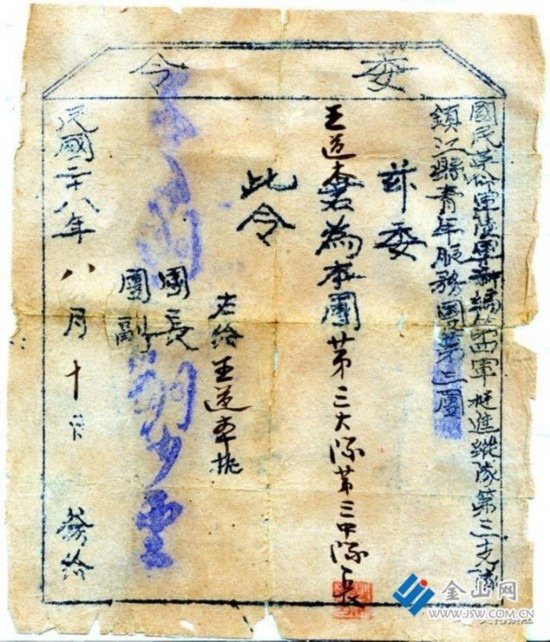 委令
國民革命軍陸軍新編第四軍挺進縱隊第三支隊
鎮江縣青年服務團第三團
茲委
王道本君為本團第三大隊第三中隊長
此令
右給王道本執
團長
團副
民國二十八年八月十日 發給
金山网
WWW.JSW.COM.CN